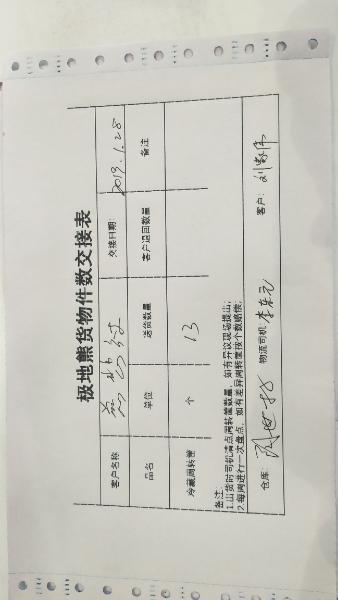 极地熊货物件数交接表
客户名称 交接日期: 2019.1.28
品名 单位 送货数量 客户退回数量 备注
冷藏周转筐 个 13
备注:
1.出货时司机清点周转筐数量,如有异议现场提出;
2.每周进行一次盘点,如有差异周转筐按个数赔偿;
仓库: 物流司机: 客户: